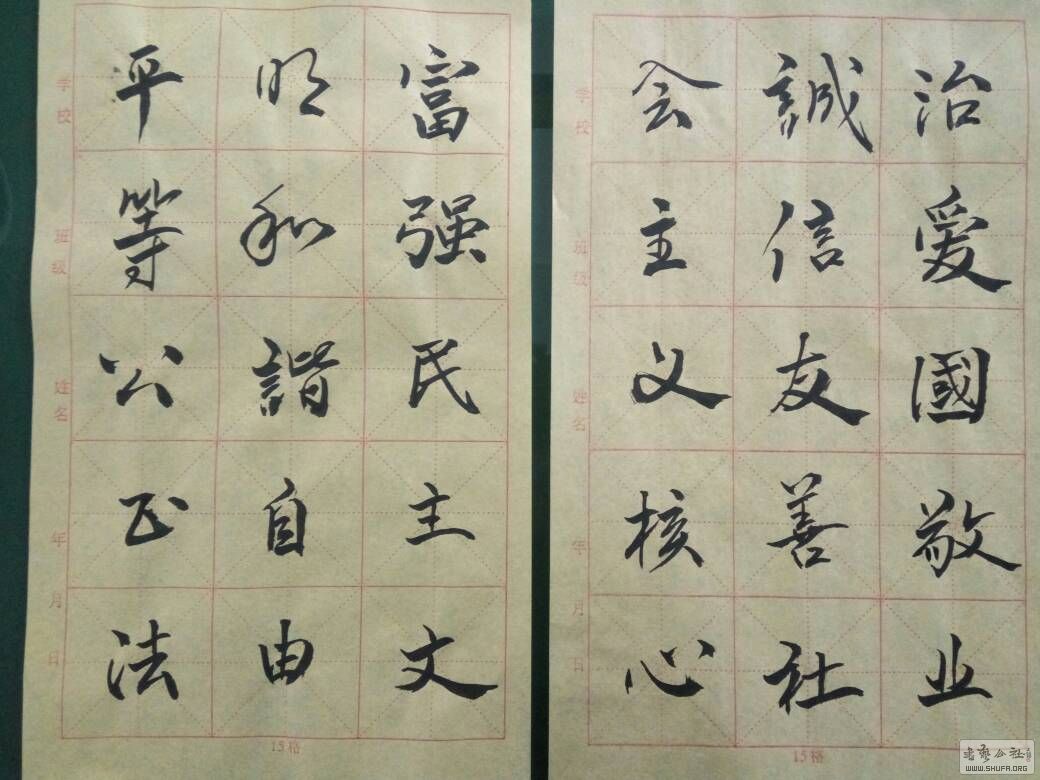 富强民主文
明和諧自由
平等公正法
治爱國敬业
誠信友善社
会主义核心
学校
班级
姓名
年月日
15格
学校
班级
姓名
年月日
15格
WWW.SHUFA.ORG